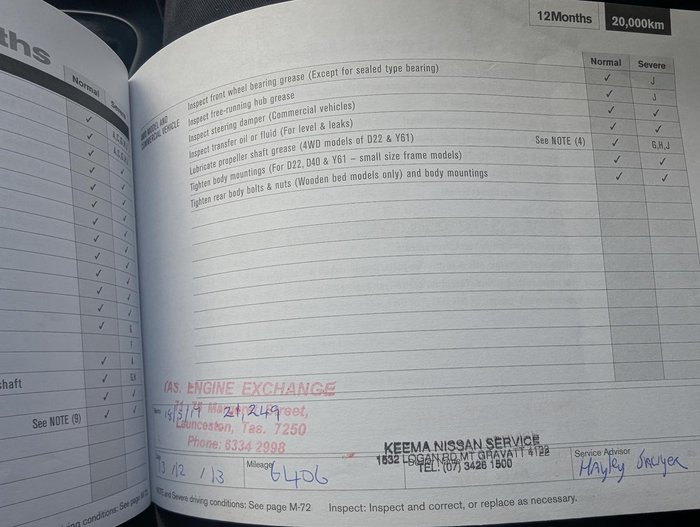 ths
Normal
Severe
shaft
See NOTE (9)
12Months
20,000km
Normal
Severe
COMMERCIAL VEHICLE
Inspect front wheel bearing grease (Except for sealed type bearing)
✓
J
Inspect free-running hub grease
✓
J
Inspect steering damper (Commercial vehicles)
✓
✓
Inspect transfer oil or fluid (For level & leaks)
✓
✓
Lubricate propeller shaft grease (4WD models of D22 & Y61)
See NOTE (4)
✓
G,H,J
Tighten body mountings (For D22, D40 & Y61 – small size frame models)
✓
✓
Tighten rear body bolts & nuts (Wooden bed models only) and body mountings
✓
✓
TAS. ENGINE EXCHANGE
Street,
21,249
Launceston, Tas. 7250
Phone: 6334 2998
KEEMA NISSAN SERVICE
1532 LOGAN RD MT GRAVATT 4122
TEL: (07) 3426 1500
13/2/13
Mileage
6406
Service Advisor
Hayley Sawyer
and Severe driving conditions: See page M-72
Inspect: Inspect and correct, or replace as necessary.